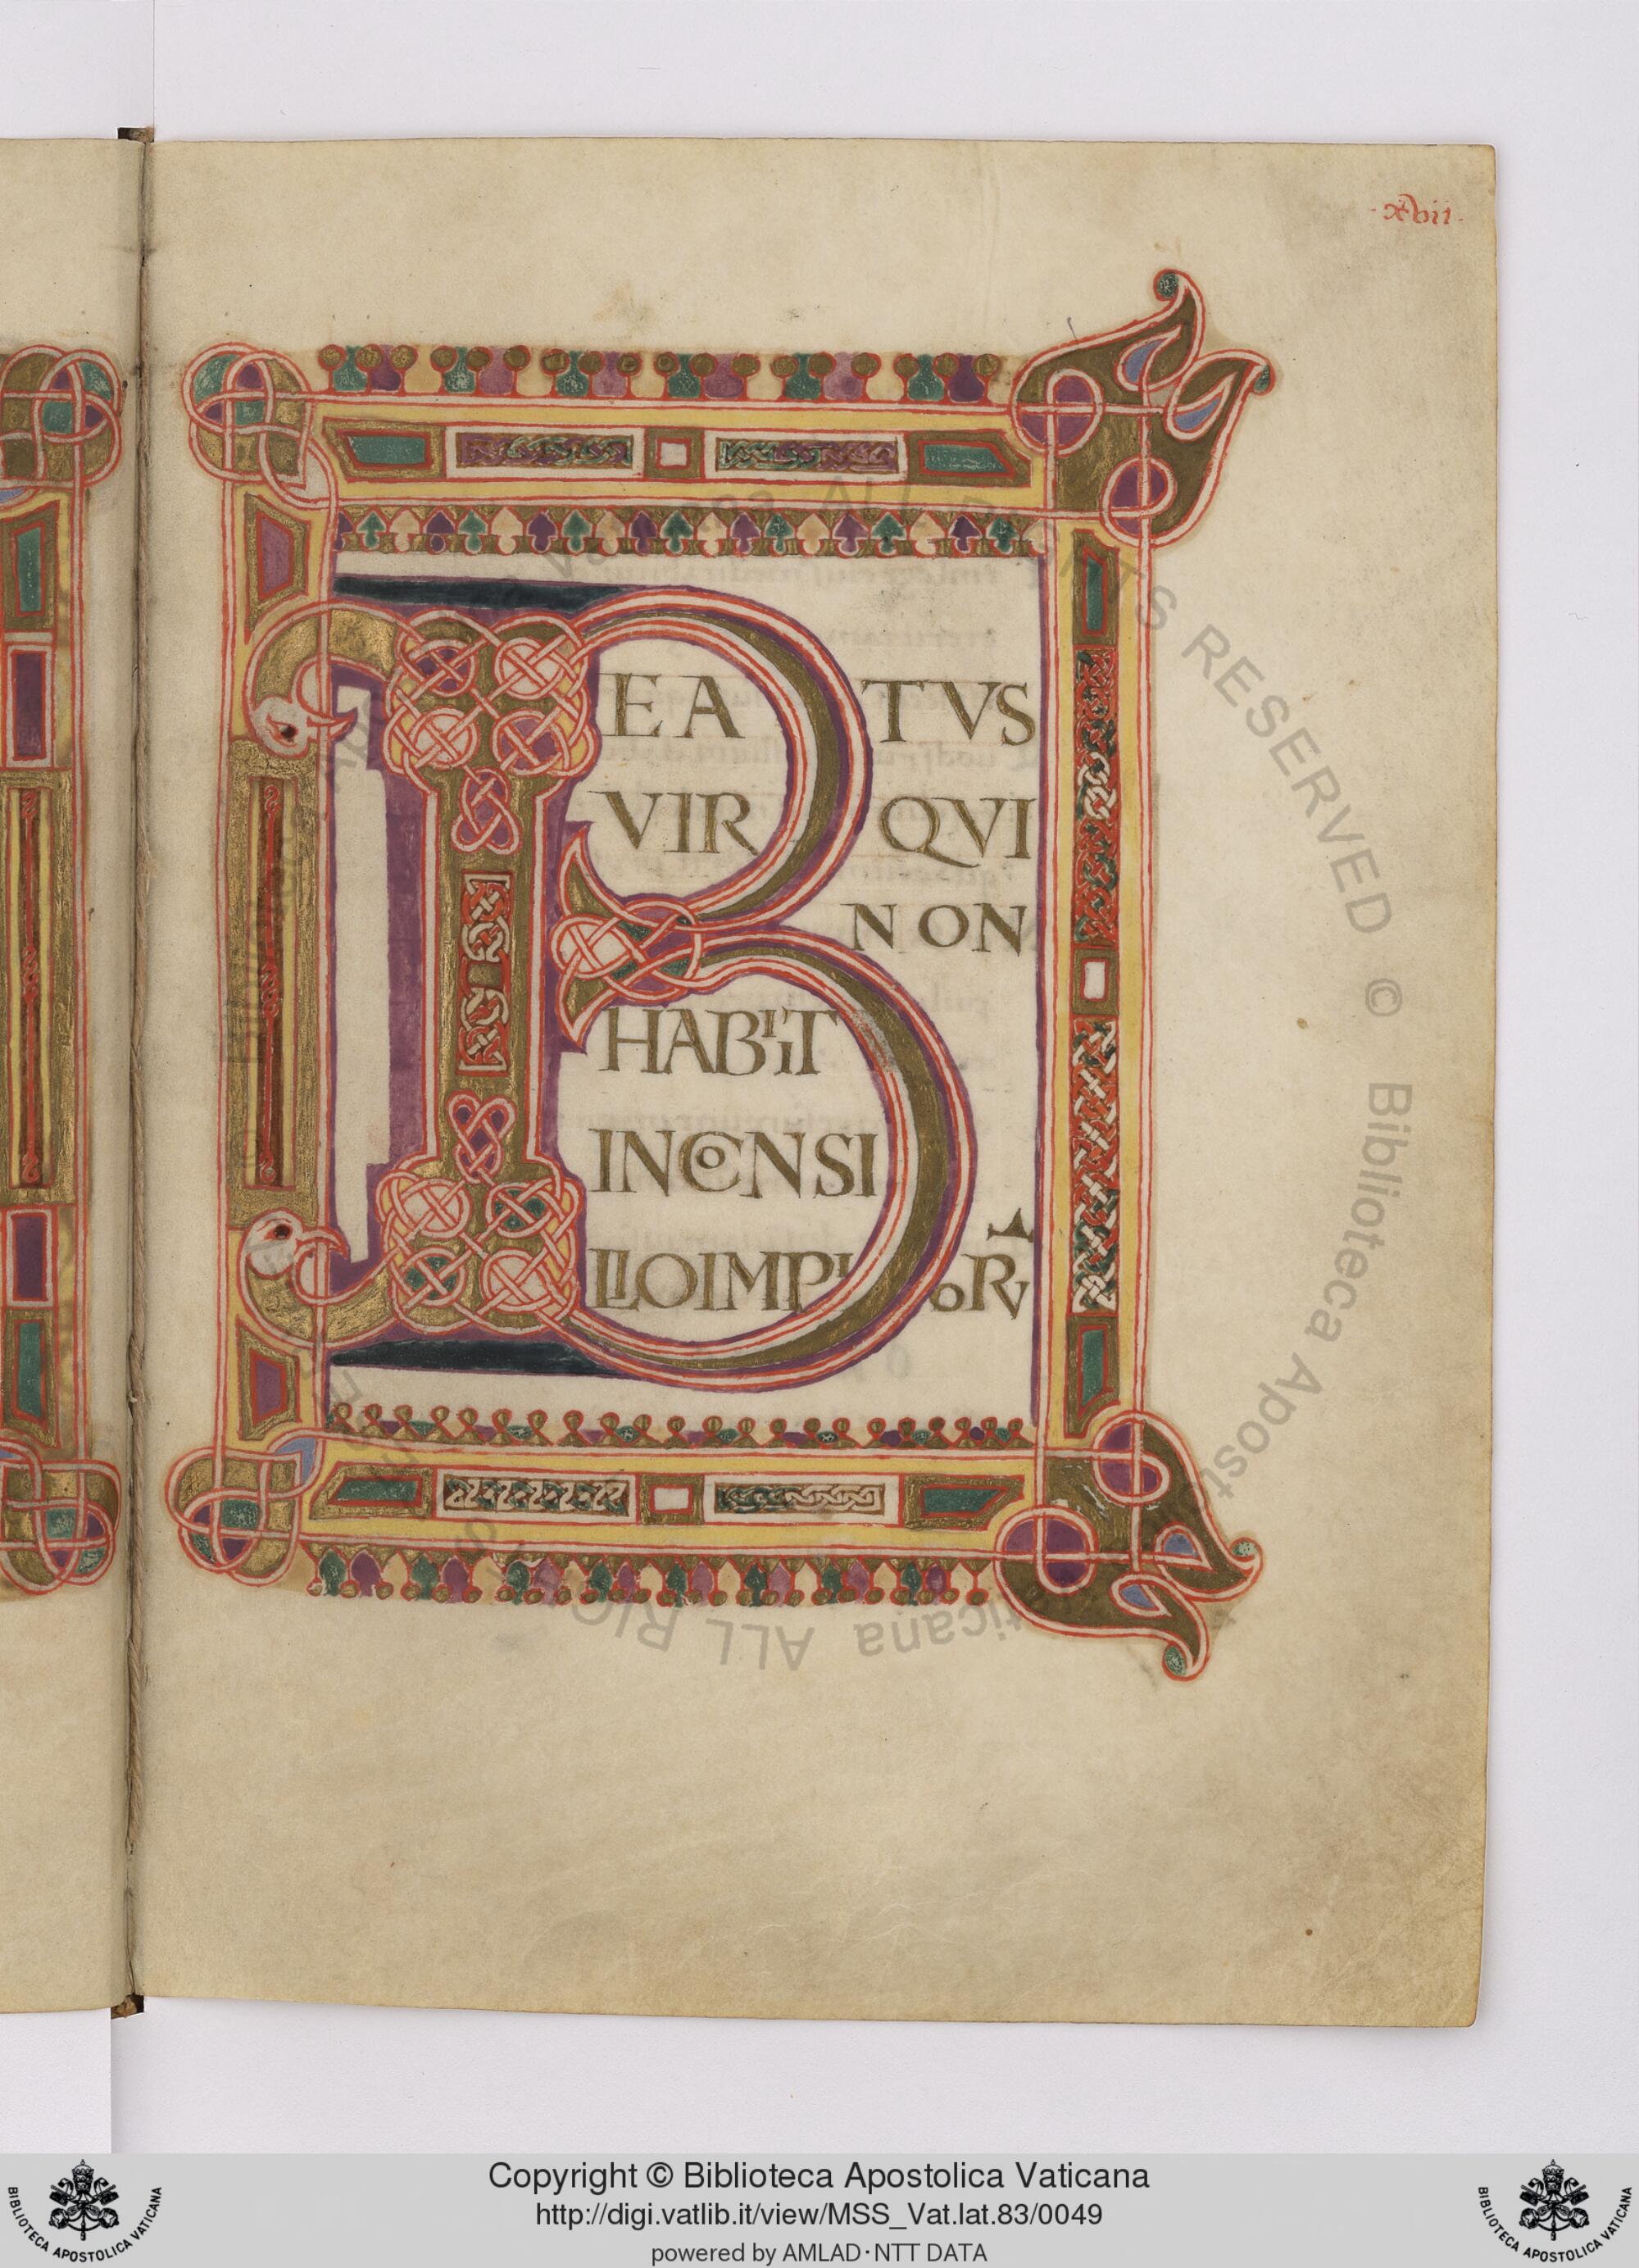 ·xvii·
BEATVS
VIR QVI
NON
HABIIT
INCONSI
LIOIMPI
oRV
© Biblioteca Apostolica Vaticana ALL RIGHTS RESERVED
Copyright © Biblioteca Apostolica Vaticana
http://digi.vatlib.it/view/MSS_Vat.lat.83/0049
powered by AMLAD·NTT DATA
BIBLIOTECA APOSTOLICA VATICANA
BIBLIOTECA APOSTOLICA VATICANA